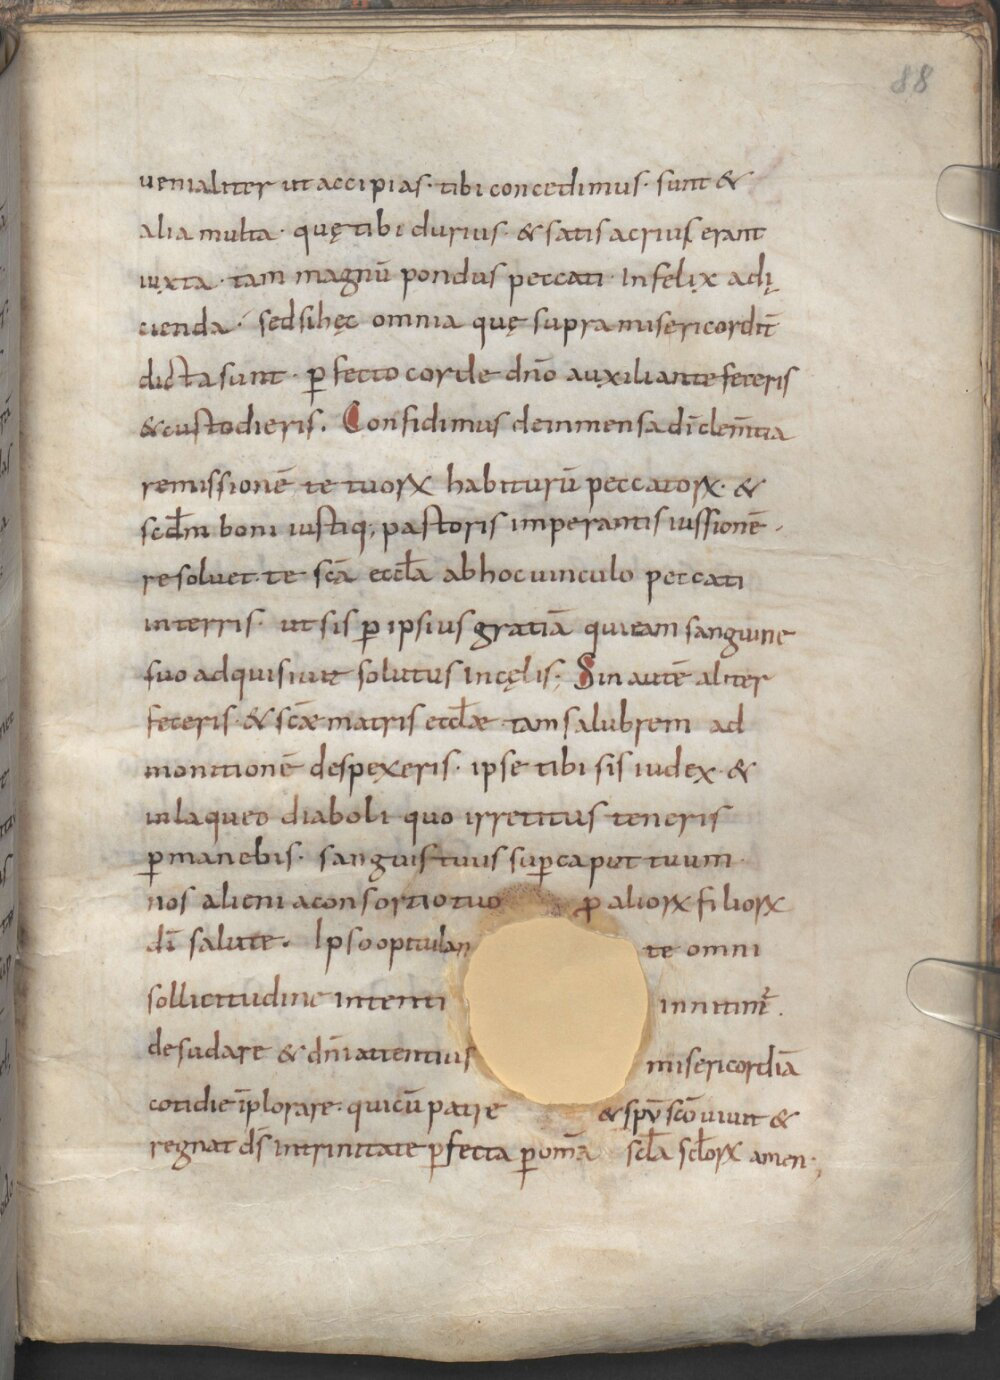 88
uenialiter ut accipias· tibi concedimus· sunt &
alia multa· quę tibi durius· & satis acrius erant
iuxta· tam magnū pondus peccati· Infelix adi
cienda· sed si hęc omnia quę supra misericordit̄
dicta sunt· ꝑfecto corde dn̄o auxiliante feceris
& custodieris. Confidimus deinmensa dī clem̄tia
remissionē te tuoꝝ habiturū peccatoꝝ· &
scd̄m boni iustiq; pastoris imperantis iussionē·
resoluet te scā eccl̄a ab hoc uinculo peccati
interris· ut sis ꝑ ipsius gratiā qui eam sanguine
suo adquisiuit solutus Incęlis; Sin autē aliter
feceris· & scǣ matris eccl̄æ tam salubrem ad
monitionē despexeris· ipse tibi sis iudex &
inlaqueo diaboli quo irretitus teneris
ꝑmanebis· sanguis tuus suꝑ caput tuum·
nos alieni aconsortio tuo ꝓ alioꝝ filioꝝ
dī salute. Ipso opitulan te omni
sollicitudine intenti innitim᷑.
desudare & dn̄i attentius misericordiā
cotidie īplorare· qui cū patre & spū scō uiuit &
regnat ds̄ intrinitate ꝑfecta ꝑ om̄a scl̄a scl̄oꝝ amen·